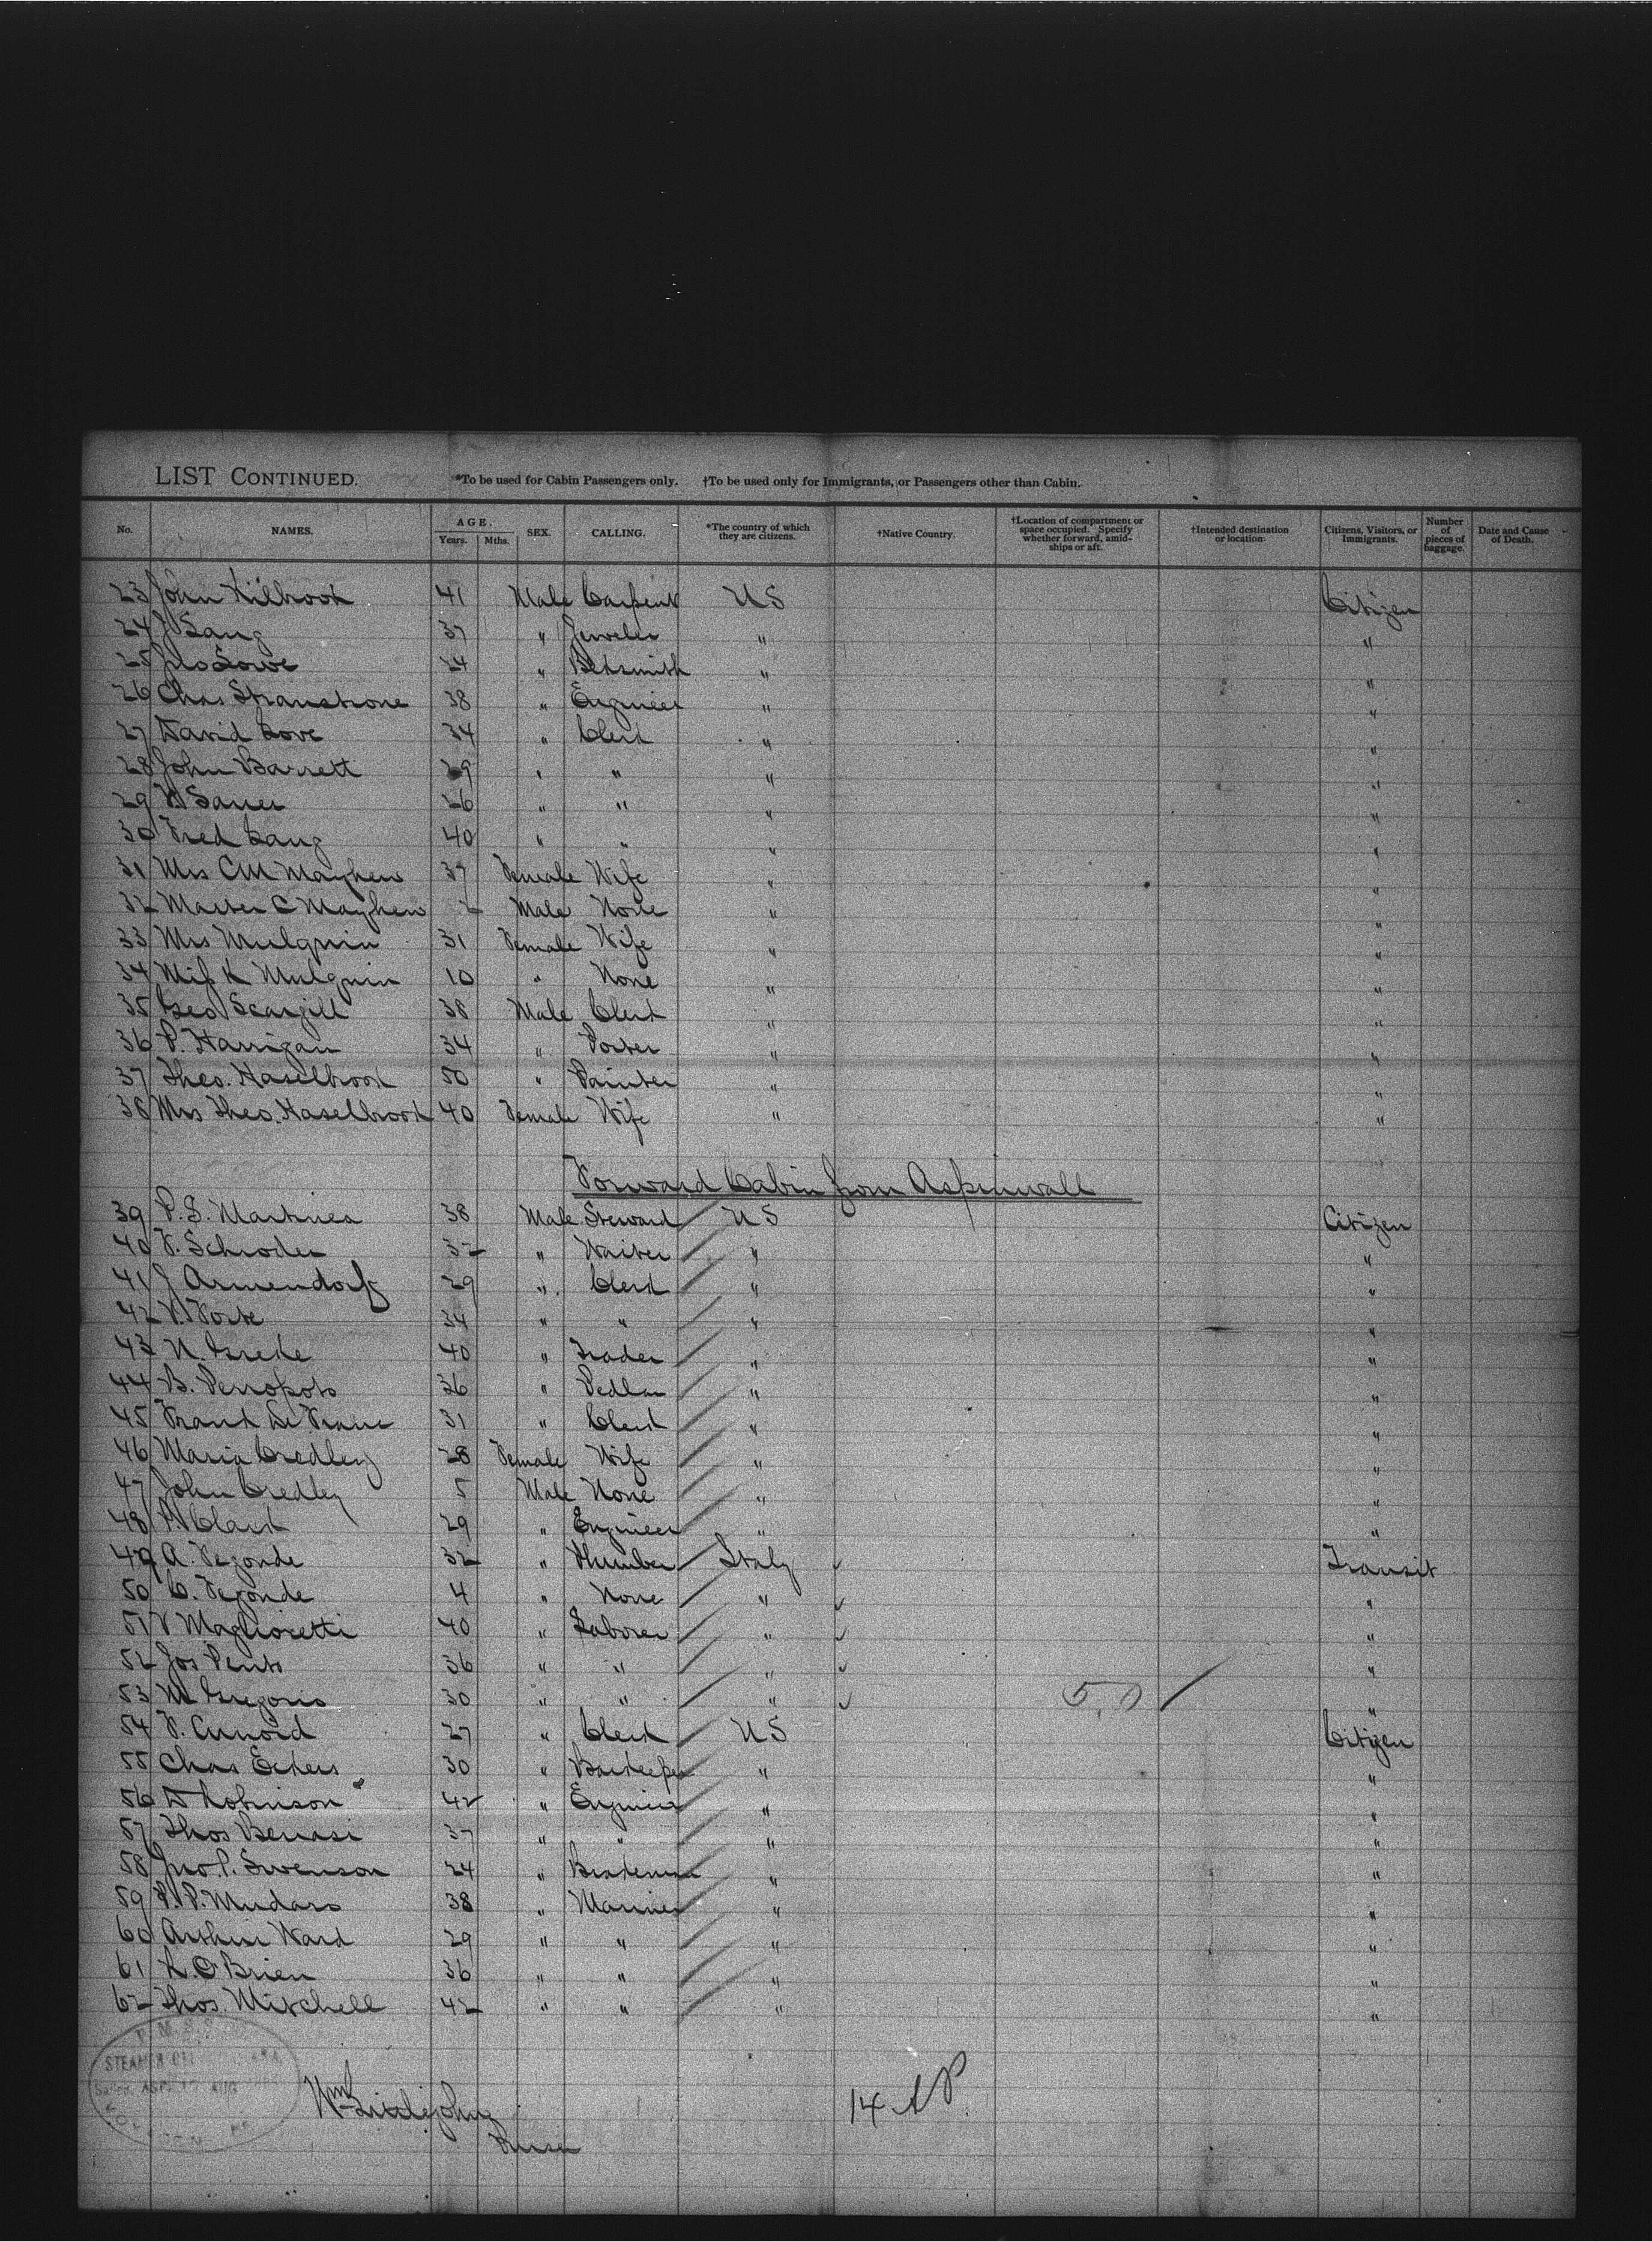 LIST CONTINUED. *To be used for Cabin Passengers only. †To be used only for Immigrants, or Passengers other than Cabin.
No. NAMES. AGE. Years. Mths. SEX. CALLING. *The country of which they are citizens. †Native Country. †Location of compartment or space occupied. Specify whether forward, amidships or aft. †Intended destination or location. Citizens, Visitors, or Immigrants. Number of pieces of baggage. Date and Cause of Death.
23 John Kilbrook 41 Male Carpent US Citizen
24 J Lang 37 " Jeweler " "
25 Jno Lowe 24 " Blksmith " "
26 Chas 38 " Engineer " "
27 David Love 34 " Clerk " "
28 John Barrett 29 " " " "
29 W Sauer 26 " " " "
30 Fred Lang 40 " " " "
31 Mrs CM Mayhew 37 Female Wife " "
32 Master C Mayhew 2 Male None " "
33 Mrs Mulquin 31 Female Wife " "
34 Miss K Mulquin 10 " None " "
35 Geo Scargill 38 Male Clerk " "
36 P. Harrigan 34 " Porter " "
37 Theo. Haselbrook 50 " Painter " "
38 Mrs Theo. Haselbrook 40 Female Wife " "
Forward Cabin from Aspinwall
39 P. S. Martinea 38 Male Steward US Citizen
40 F. Schroder 32 " Waiter " "
41 J Armendorf 29 " Clerk " "
42 34 " " " "
43 N. Grede 40 " Trader " "
44 B. 36 " Pedlar " "
45 Frank De 31 " Clerk " "
46 Maria Credley 28 Female Wife " "
47 John Credley 5 Male None " "
48 Clark 29 " Engineer " "
49 A. Pezonde 32 " Plumber Italy Transit
50 C. Pezonde 4 " None " "
51 V Maglioretti 40 " Laborer " "
52 Jos 36 " " " "
53 M Gregoris 30 " " " " 5.0
54 27 " Clerk US Citizen
55 Chas Eckers 30 " Barkeeper " "
56 D Robinson 42 " Engineer " "
57 Thos 37 " " " "
58 Jno. P. Swenson 24 " " "
59 P. P. Mudaro 38 " Mariner " "
60 Arthur Ward 29 " " " "
61 K. O'Brien 36 " " " "
62 Thos. Mitchell 42 " " " "
P. M. S. S.
STEAMER
AUG
Wm Littlejohn
Purser
14 A P